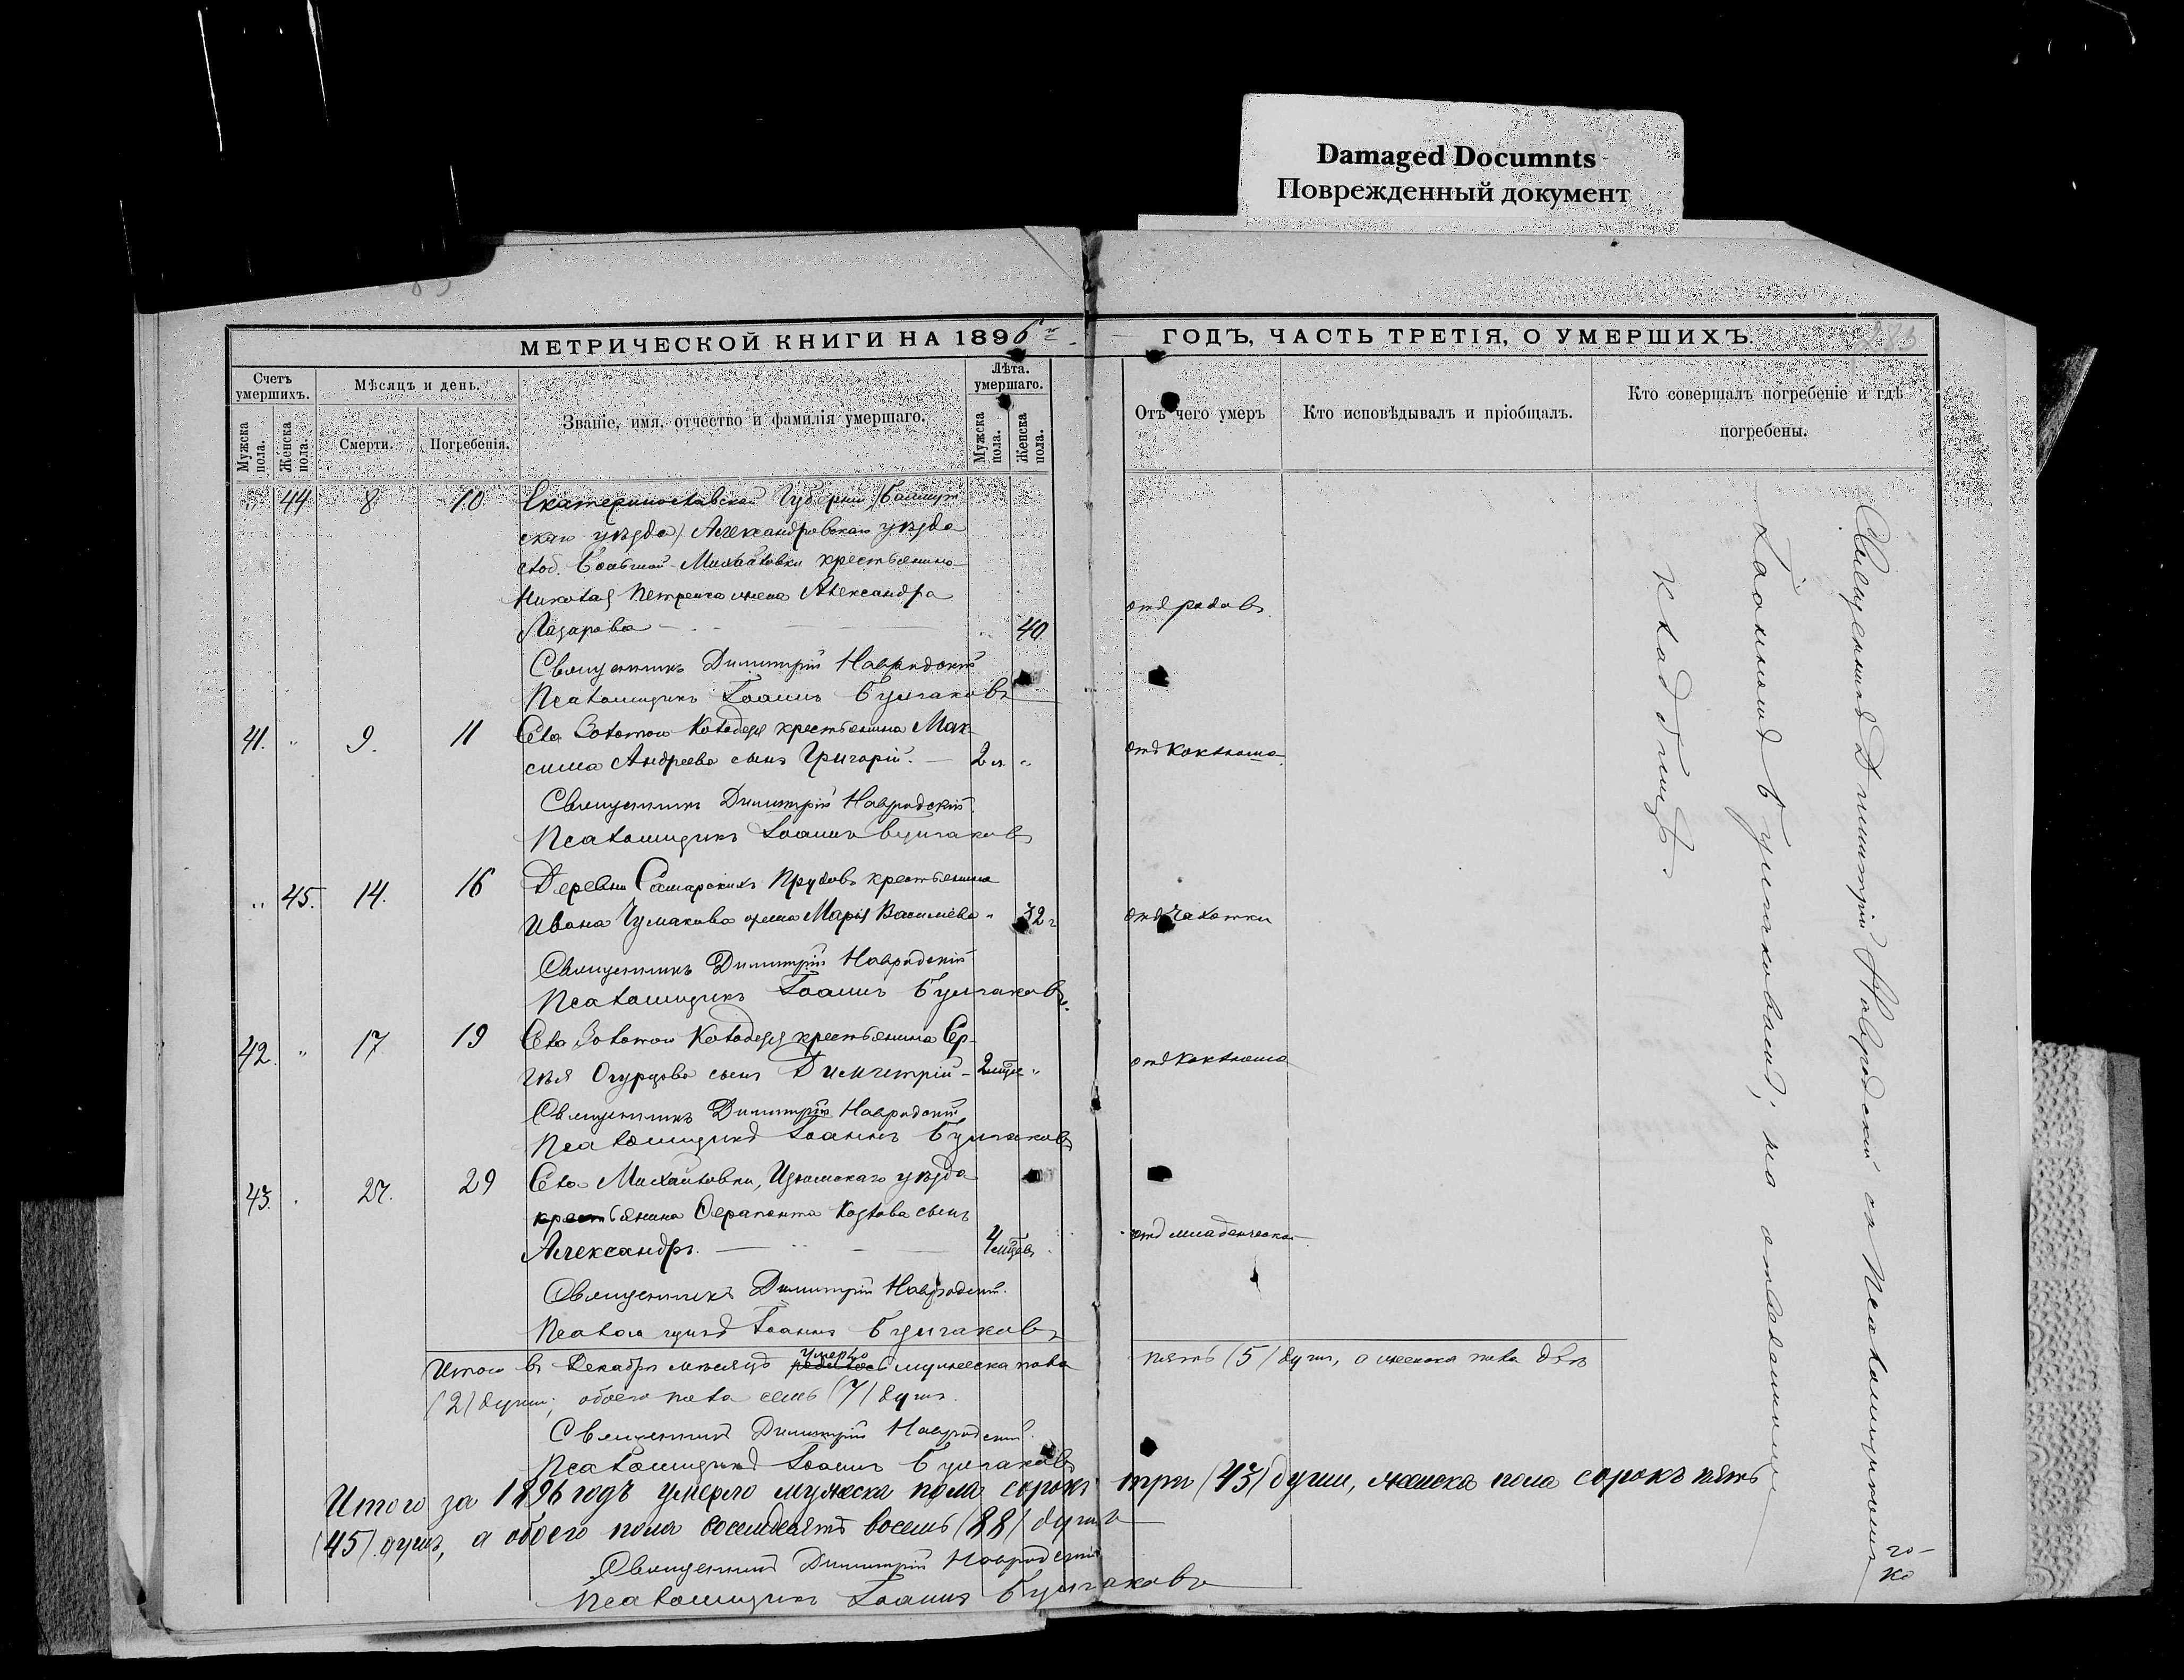 Damaged Documnts
Поврежденный документ
МЕТРИЧЕСКОЙ КНИГИ НА 1896 ГОДЪ, ЧАСТЬ ТРЕТІЯ, О УМЕРШИХЪ.
283
Счетъ умершихъ.
Мужска пола.
Женска пола.
Мѣсяцъ и день.
Смерти.
Погребенія.
Званіе, имя, отчество и фамилія умершаго.
Лѣта. умершаго.
Мужска пола.
Женска пола.
Отъ чего умеръ
Кто исповѣдывалъ и пріобщалъ.
Кто совершалъ погребеніе и гдѣ
погребены.
" 44 8 10 Екатеринославской Губерніи /Бахмут
скаго уѣзда/ Александровскаго уѣзда
слоб. Большой-Михайловки крестьянина
Николая Петренка жена Александра
Лазарева 40 отъ родовъ
Священникъ Димитрій Навродскій
Псаломщикъ Іоаннъ Булгаковъ
41. " 9. 11 Села Золотого Колодезя крестьянина Мак-
сима Андреева сынъ Григорій. 2 " отъ коклюша
Священникъ Димитрій Навродскій
Псаломщикъ Іоаннъ Булгаковъ
" 45. 14. 16 Деревни Самарскихъ Прудовъ крестьянина
Ивана Чумакова жена Марія Васильева " 32 отъ чахотки
Священникъ Димитрій Навродскій
Псаломщикъ Іоаннъ Булгаковъ
42. " 17 19 Села Золотого Колодезя крестьянина Сер-
гѣя Огурцова сынъ Димитрій 2 " отъ коклюша
Священникъ Димитрій Навродскій
Псаломщикъ Іоаннъ Булгаковъ
43. 27. 29 Села Михайловки, Изюмскаго уѣзда
крестьянина Ферапонта Козлова сынъ
Александръ. 4 отъ младенческой
Священникъ Димитрій Навродскій
Псаломщикъ Іоаннъ Булгаковъ
умерло
Итого въ Декабрѣ мѣсяцѣ родилось мужеска пола пять (5) душъ, а женска пола двѣ
(2) души; обоего пола семь (7) душъ.
Священникъ Димитрій Навродскій
Псаломщикъ Іоаннъ Булгаковъ
Итого за 1896 годъ умерло мужеска пола сорокъ три (43) души, женска пола сорокъ пять
(45) душъ, а обоего пола восемдесятъ восемь (88) душъ
Священникъ Димитрій Навродскій
Псаломщикъ Іоаннъ Булгаковъ
Священникъ Димитрій Навродскій съ Псаломщикомъ
Іоанномъ Булгаковымъ; на
кладбищѣ.